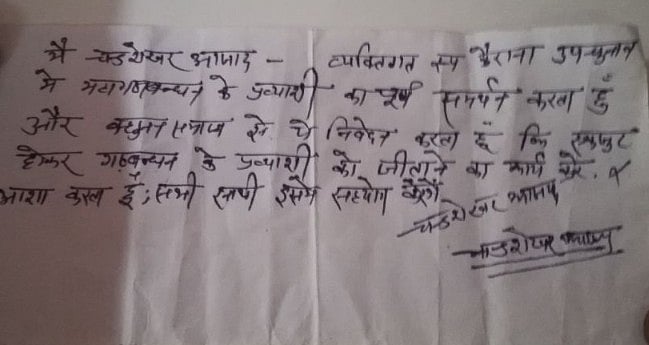 मै चन्द्रशेखर आजाद - व्यक्तिगत रूप कैराना उपचुनाव
मे महागठबन्धन के प्रत्याशी का पूर्ण समर्थन करता हूँ
और बहुजन समाज से ये निवेदन करता हूं कि एकजुट
होकर गठबन्धन के प्रत्याशी को जीताने का कार्य करे. व
आशा करता हूँ; सभी साथी इसमे सहयोग करेंगे
चन्द्रशेखर आजाद
चन्द्रशेखर आजाद